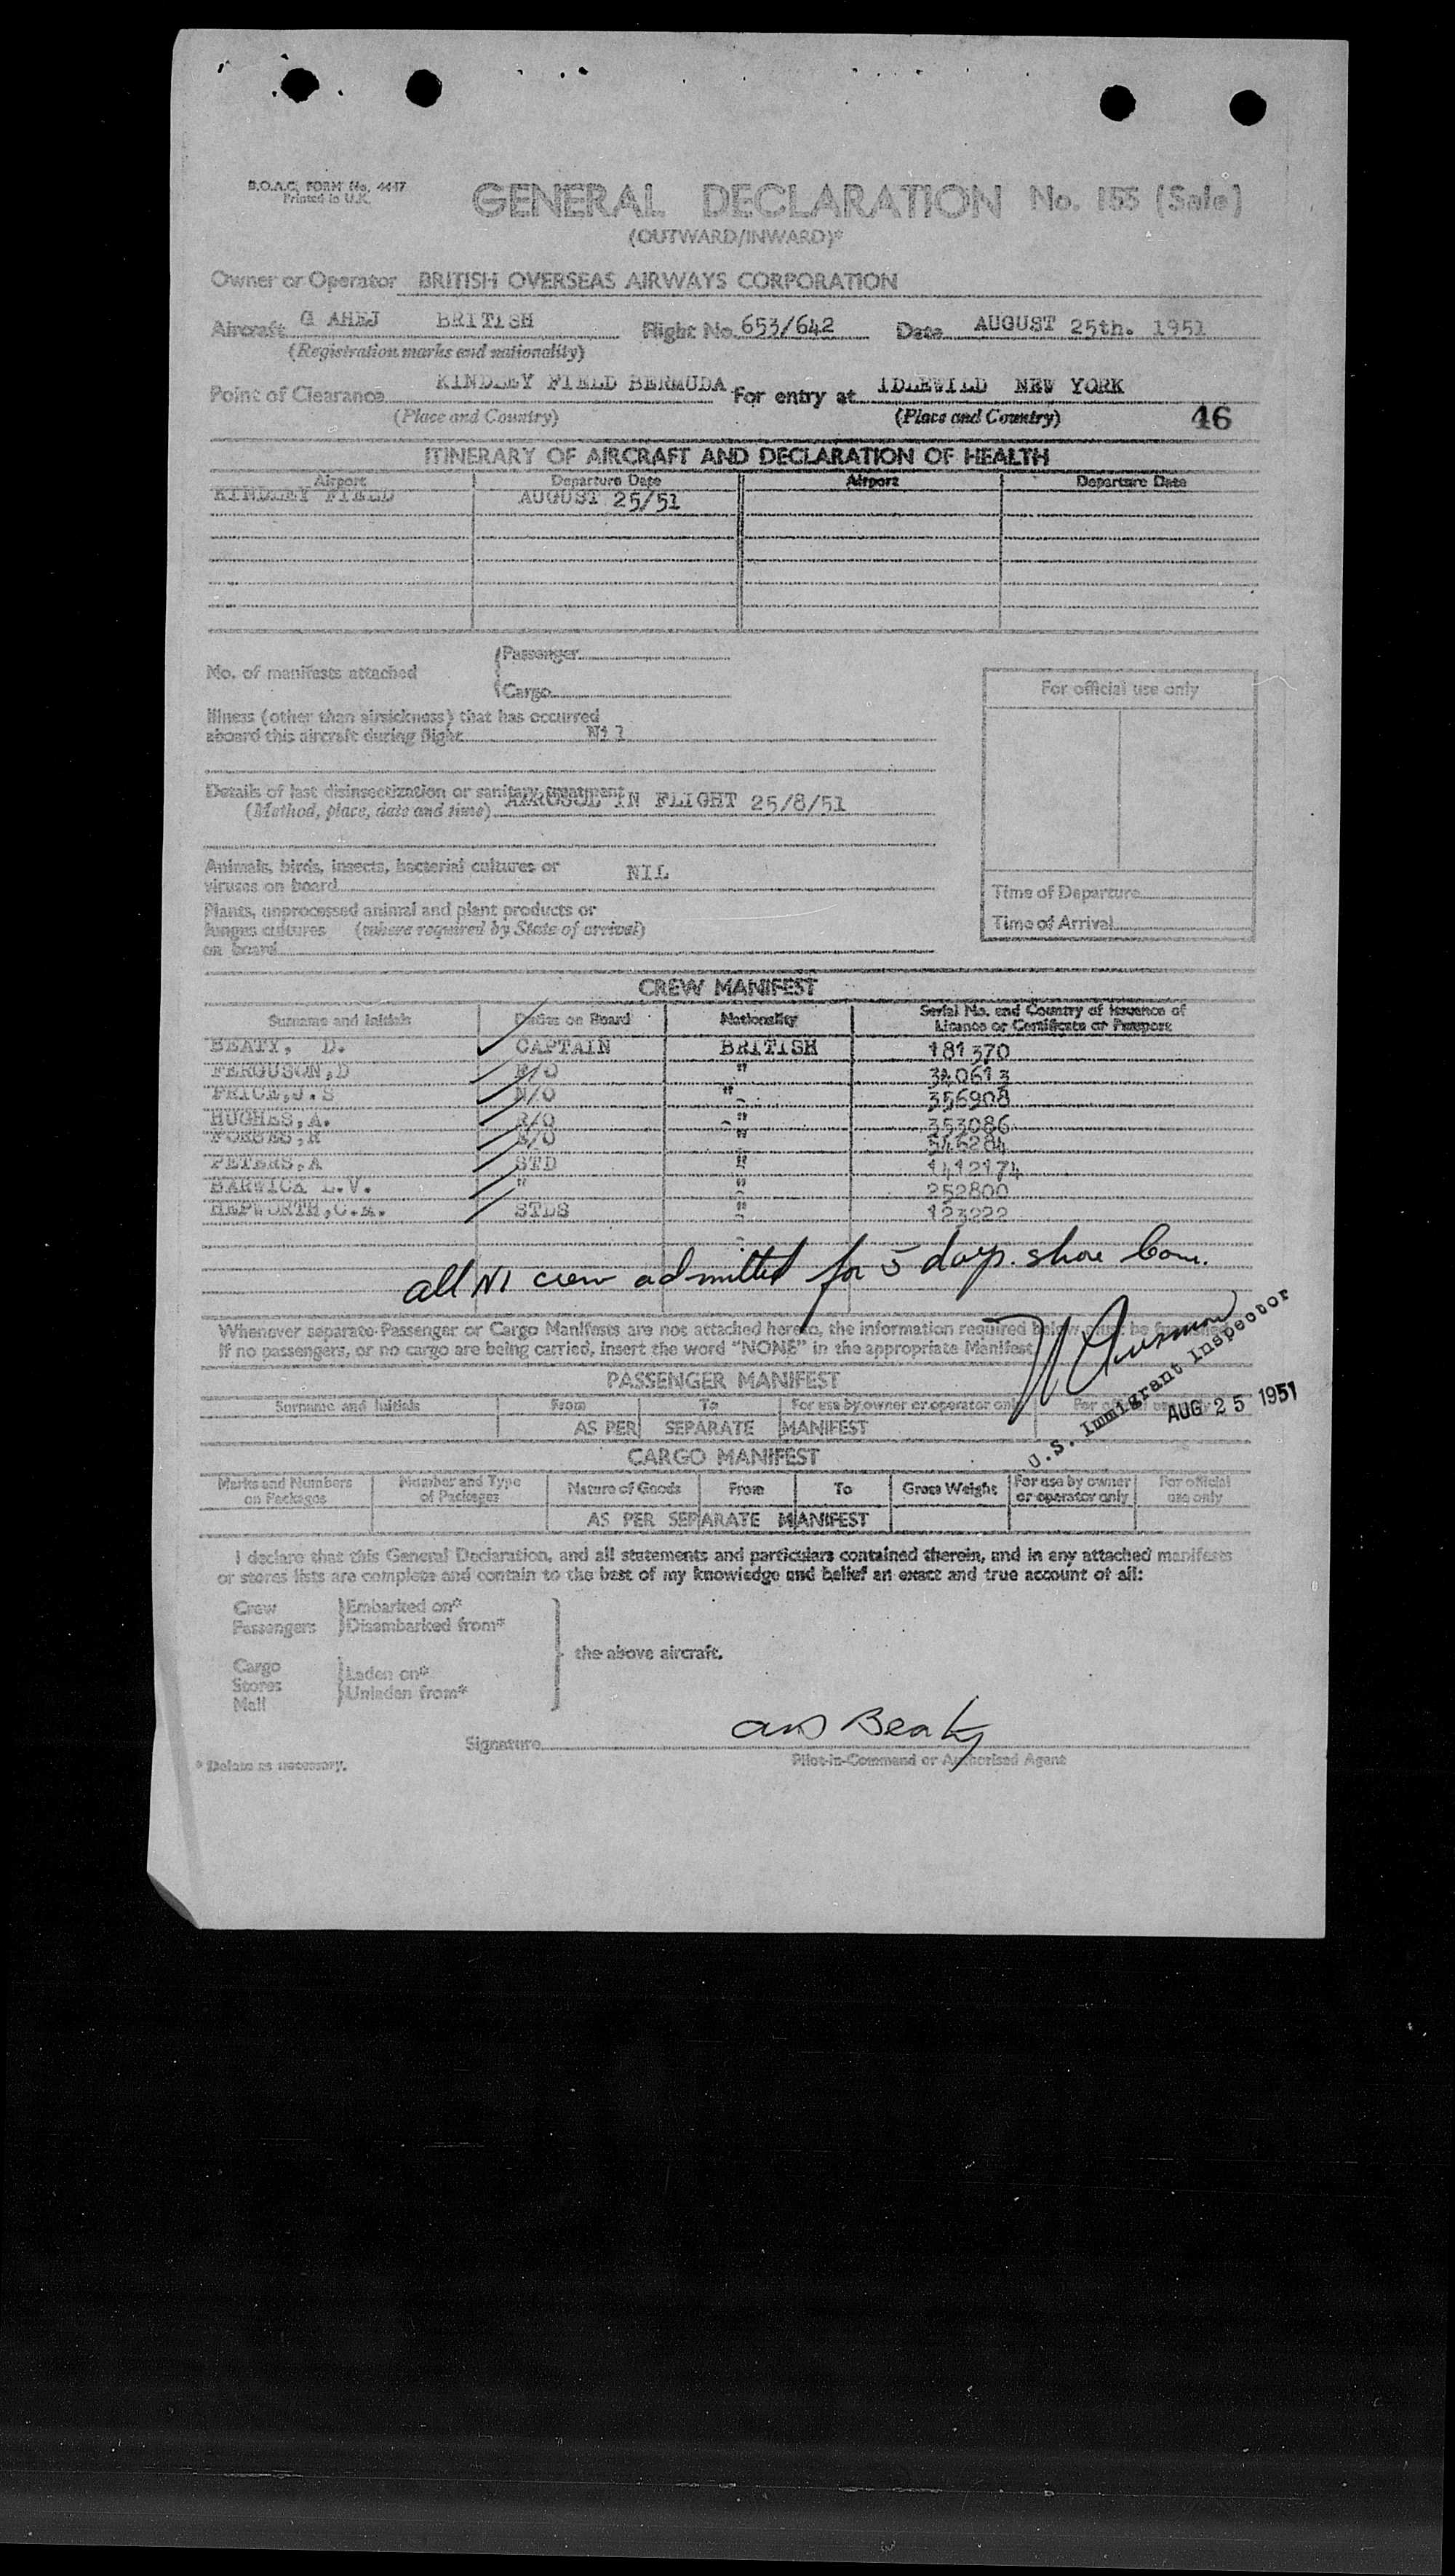 B.O.A.C. FORM No. 4447
Printed in U.K.
GENERAL DECLARATION No. 155 (Sale)
(OUTWARD/INWARD)*
Owner or Operator BRITISH OVERSEAS AIRWAYS CORPORATION
Aircraft G AHEJ BRITISH Flight No. 653/642 Date AUGUST 25th. 1951
(Registration marks and nationality)
Point of Clearance KINDLEY FIELD BERMUDA For entry at IDLEWILD NEW YORK
(Place and Country) (Place and Country) 46
ITINERARY OF AIRCRAFT AND DECLARATION OF HEALTH
Airport Departure Date Airport Departure Date
KINDLEY FIELD AUGUST 25/51
No. of manifests attached
Passenger
Cargo
Illness (other than airsickness) that has occurred
aboard this aircraft during flight Nil
Details of last disinsectization or sanitary treatment
(Method, place, date and time) AEROSOL IN FLIGHT 25/8/51
Animals, birds, insects, bacterial cultures or
viruses on board NIL
Plants, unprocessed animal and plant products or
fungus cultures (where required by State of arrival)
on board
For official use only
Time of Departure
Time of Arrival
CREW MANIFEST
Surname and Initials Duties on Board Nationality Serial No. and Country of Issuance of
Licence or Certificate or Passport
BEATY, D. CAPTAIN BRITISH 181370
FERGUSON,D F/O " 340613
PRICE,J.S N/O " 356908
HUGHES,A. R/O " 353086
FORBES,R E/O " 546284
PETERS,A STD " 1412174
BARWICK L.V. " " 252800
HEPWORTH,C.A. STDS " 123222
all NI crew admitted for 5 days. shore leave.
Whenever separate Passenger or Cargo Manifests are not attached hereto, the information required below must be furnished.
If no passengers, or no cargo are being carried, insert the word "NONE" in the appropriate Manifest.
U.S. Immigrant Inspector
AUG 25 1951
PASSENGER MANIFEST
Surname and Initials From To For use by owner or operator only For official use only
AS PER SEPARATE MANIFEST
CARGO MANIFEST
Marks and Numbers on Packages Number and Type of Packages Nature of Goods From To Gross Weight For use by owner or operator only For official use only
AS PER SEPARATE MANIFEST
I declare that this General Declaration, and all statements and particulars contained therein, and in any attached manifests
or stores lists are complete and contain to the best of my knowledge and belief an exact and true account of all:
Crew Embarked on*
Passengers Disembarked from*
the above aircraft.
Cargo
Stores Laden on*
Mail Unladen from*
Signature Beaty
* Delete as necessary. Pilot-in-Command or Authorised Agent